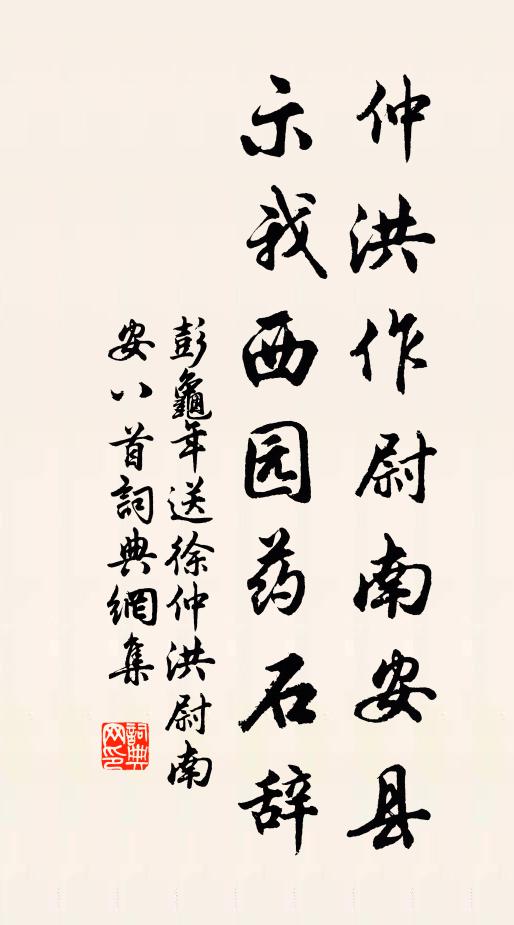 仲洪作尉南安县
示我西园药石辞
彭龜年送徐仲洪尉南
安八首詞典網集
詞典
网印